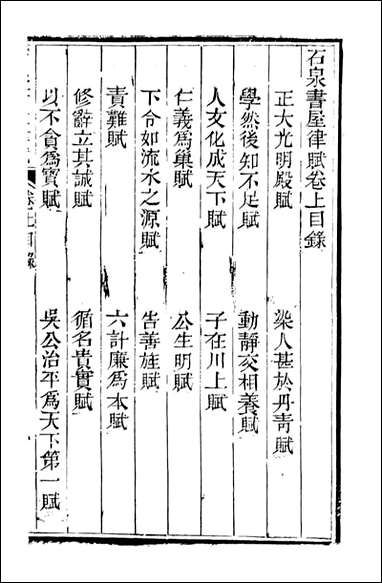 石泉書屋律賦卷上目錄
正大光明殿賦　染人甚於丹青賦
學然後知不足賦　動靜交相養賦
人文化成天下賦　子在川上賦
仁義為巢賦　公生明賦
下令如流水之源賦　告善旌賦
責難賦　六計廉為本賦
修辭立其誠賦　循名責實賦
以不貪為寶賦　吳公治平為天下第一賦
卷上目錄